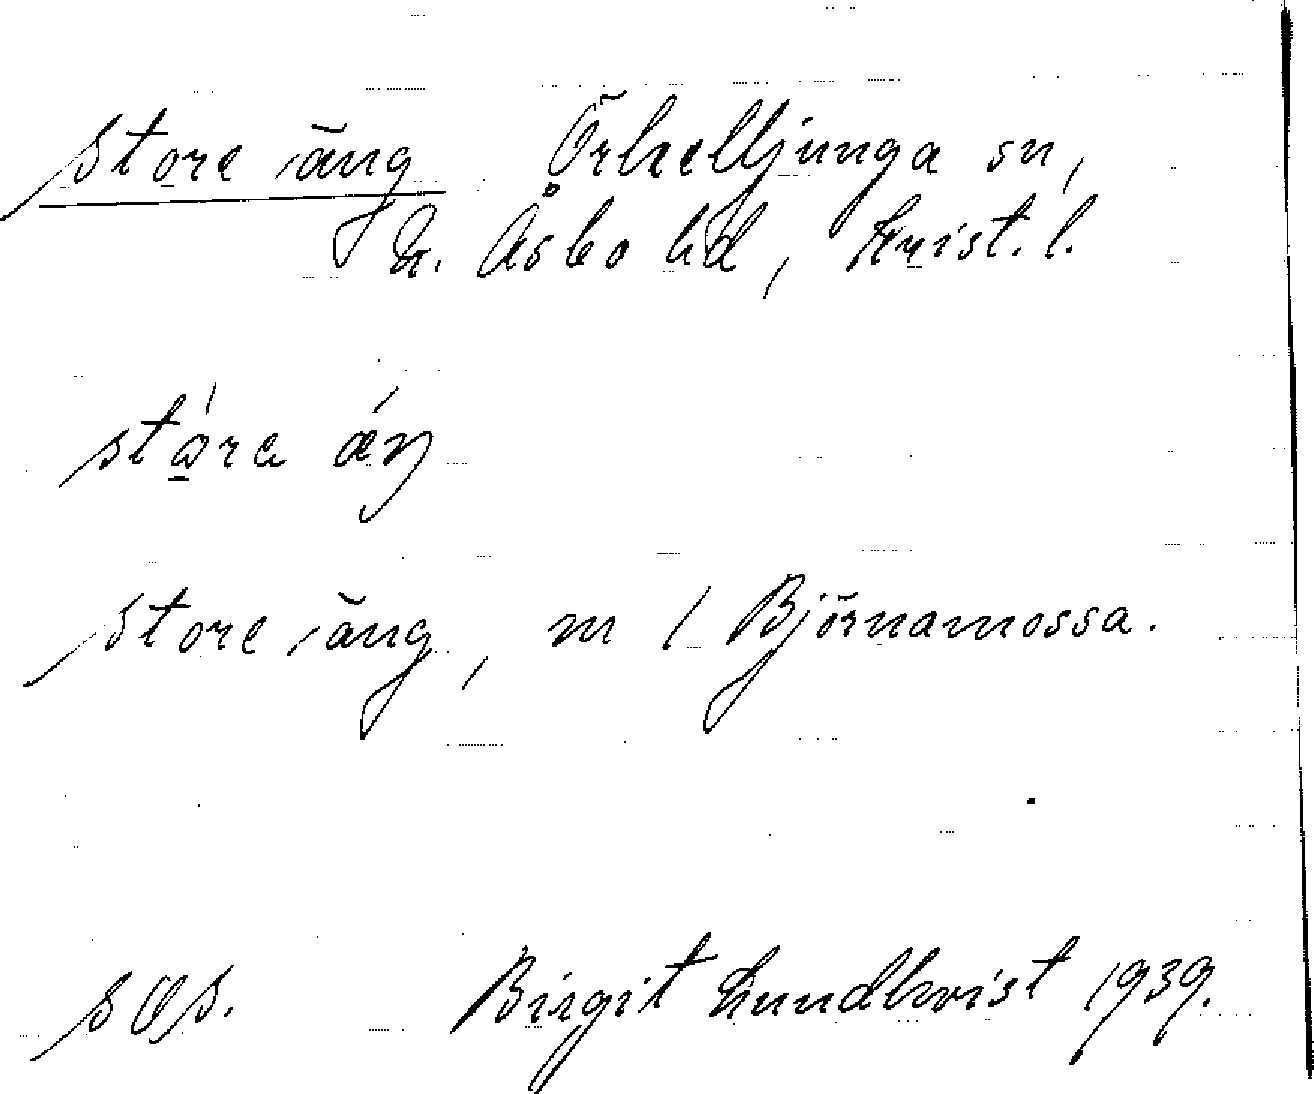 Store äng Örkelljunga sn,
N. Åsbo hd, Krist. l.
stóra ǽŋ
Store äng, m / Björnamossa.
Birgit Lundkvist 1939.